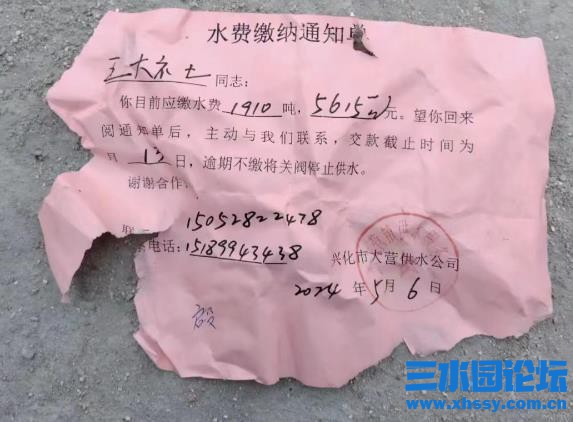 水费缴纳通知单
王大礼士同志:
你目前应缴水费1910吨,5615元。望你回来
阅通知单后,主动与我们联系,交款截止时间为
月13日,逾期不缴将关阀停止供水。
谢谢合作
15052822478
电话:15189943438
兴化市大营供水公司
2024年5月6日
三水园论坛
www.xhssy.com.cn